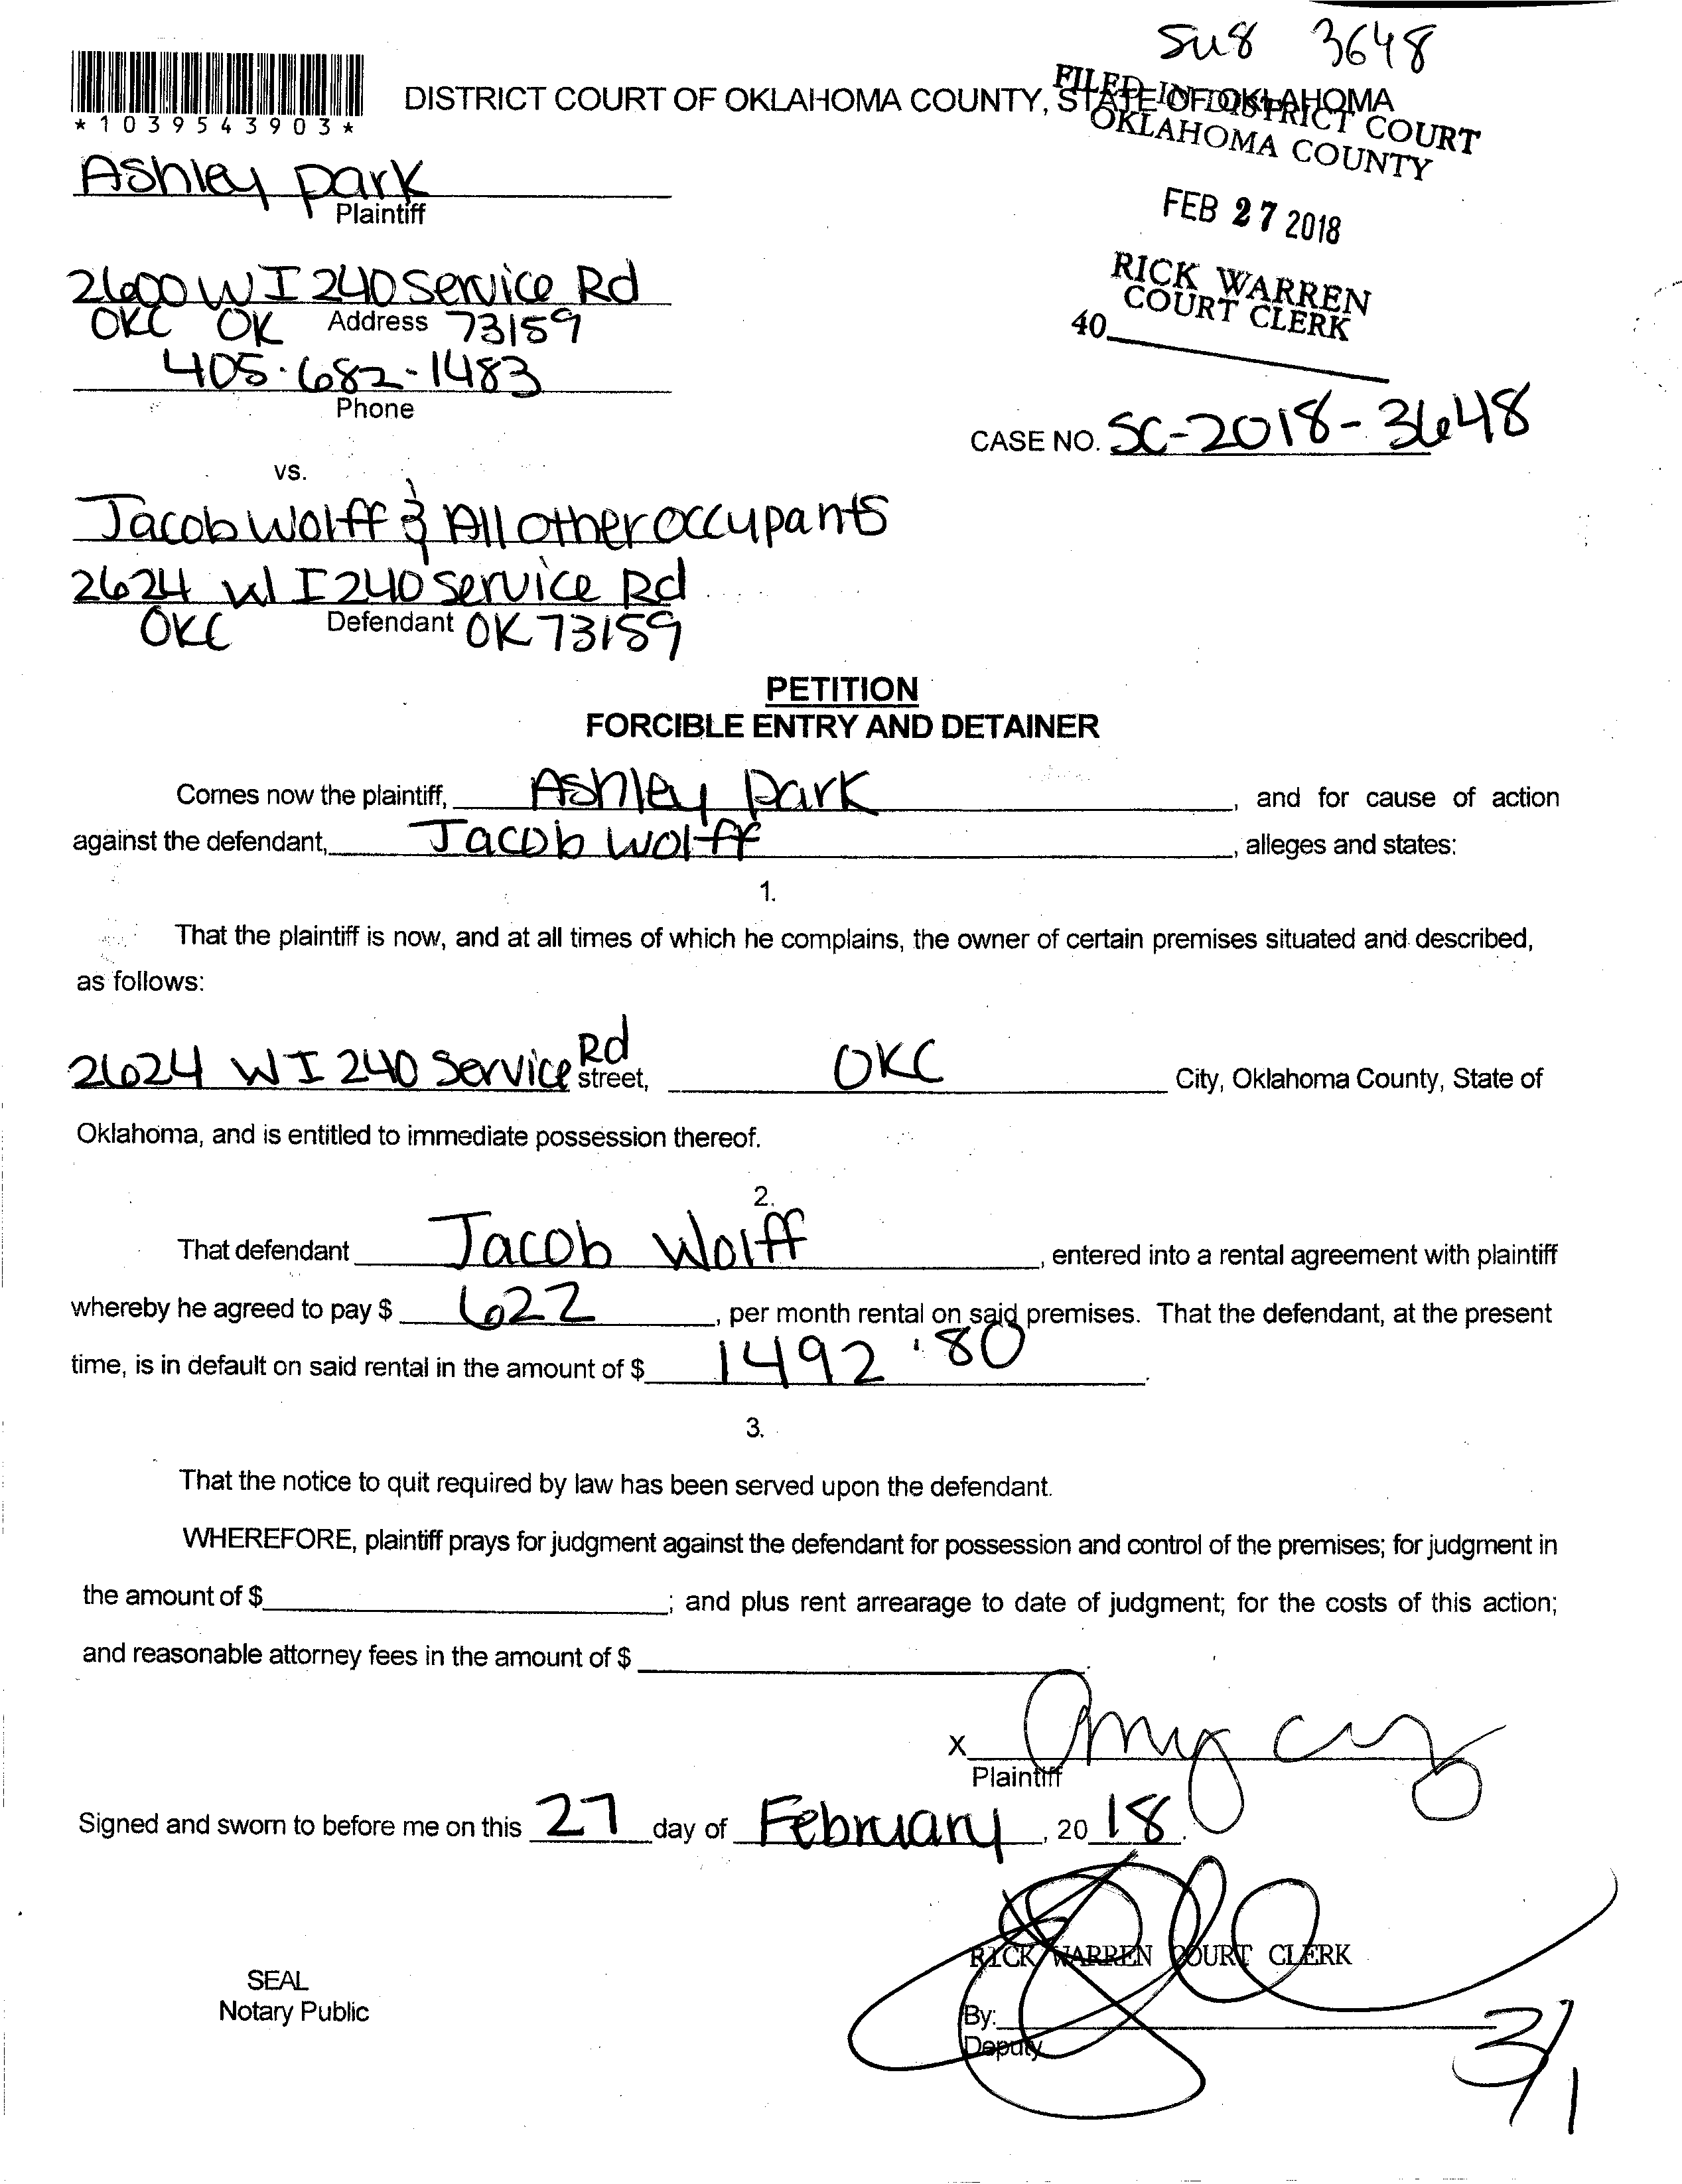 SU8 3648
*1039543903*
DISTRICT COURT OF OKLAHOMA COUNTY, STATE OF OKLAHOMA
FILED IN DISTRICT COURT
OKLAHOMA COUNTY
FEB 27 2018
RICK WARREN
COURT CLERK
40
Ashley Park
Plaintiff
2600 W I 240 Service Rd
OKC OK Address 73159
405-682-1483
Phone
CASE NO. SC-2018-3648
vs.
Jacob Wolff & All other occupants
2624 W I 240 Service Rd
OKC Defendant OK 73159
PETITION
FORCIBLE ENTRY AND DETAINER
Comes now the plaintiff, Ashley Park, and for cause of action
against the defendant, Jacob Wolff, alleges and states:
1.
That the plaintiff is now, and at all times of which he complains, the owner of certain premises situated and described,
as follows:
2624 W I 240 Service Rd street, OKC City, Oklahoma County, State of
Oklahoma, and is entitled to immediate possession thereof.
2.
That defendant Jacob Wolff, entered into a rental agreement with plaintiff
whereby he agreed to pay $ 622, per month rental on said premises. That the defendant, at the present
time, is in default on said rental in the amount of $ 1492.80.
3.
That the notice to quit required by law has been served upon the defendant.
WHEREFORE, plaintiff prays for judgment against the defendant for possession and control of the premises; for judgment in
the amount of $; and plus rent arrearage to date of judgment; for the costs of this action;
and reasonable attorney fees in the amount of $.
X
Plaintiff
Signed and sworn to before me on this 27 day of February, 2018.
RICK WARREN COURT CLERK
SEAL
Notary Public
By:
Deputy
3/1